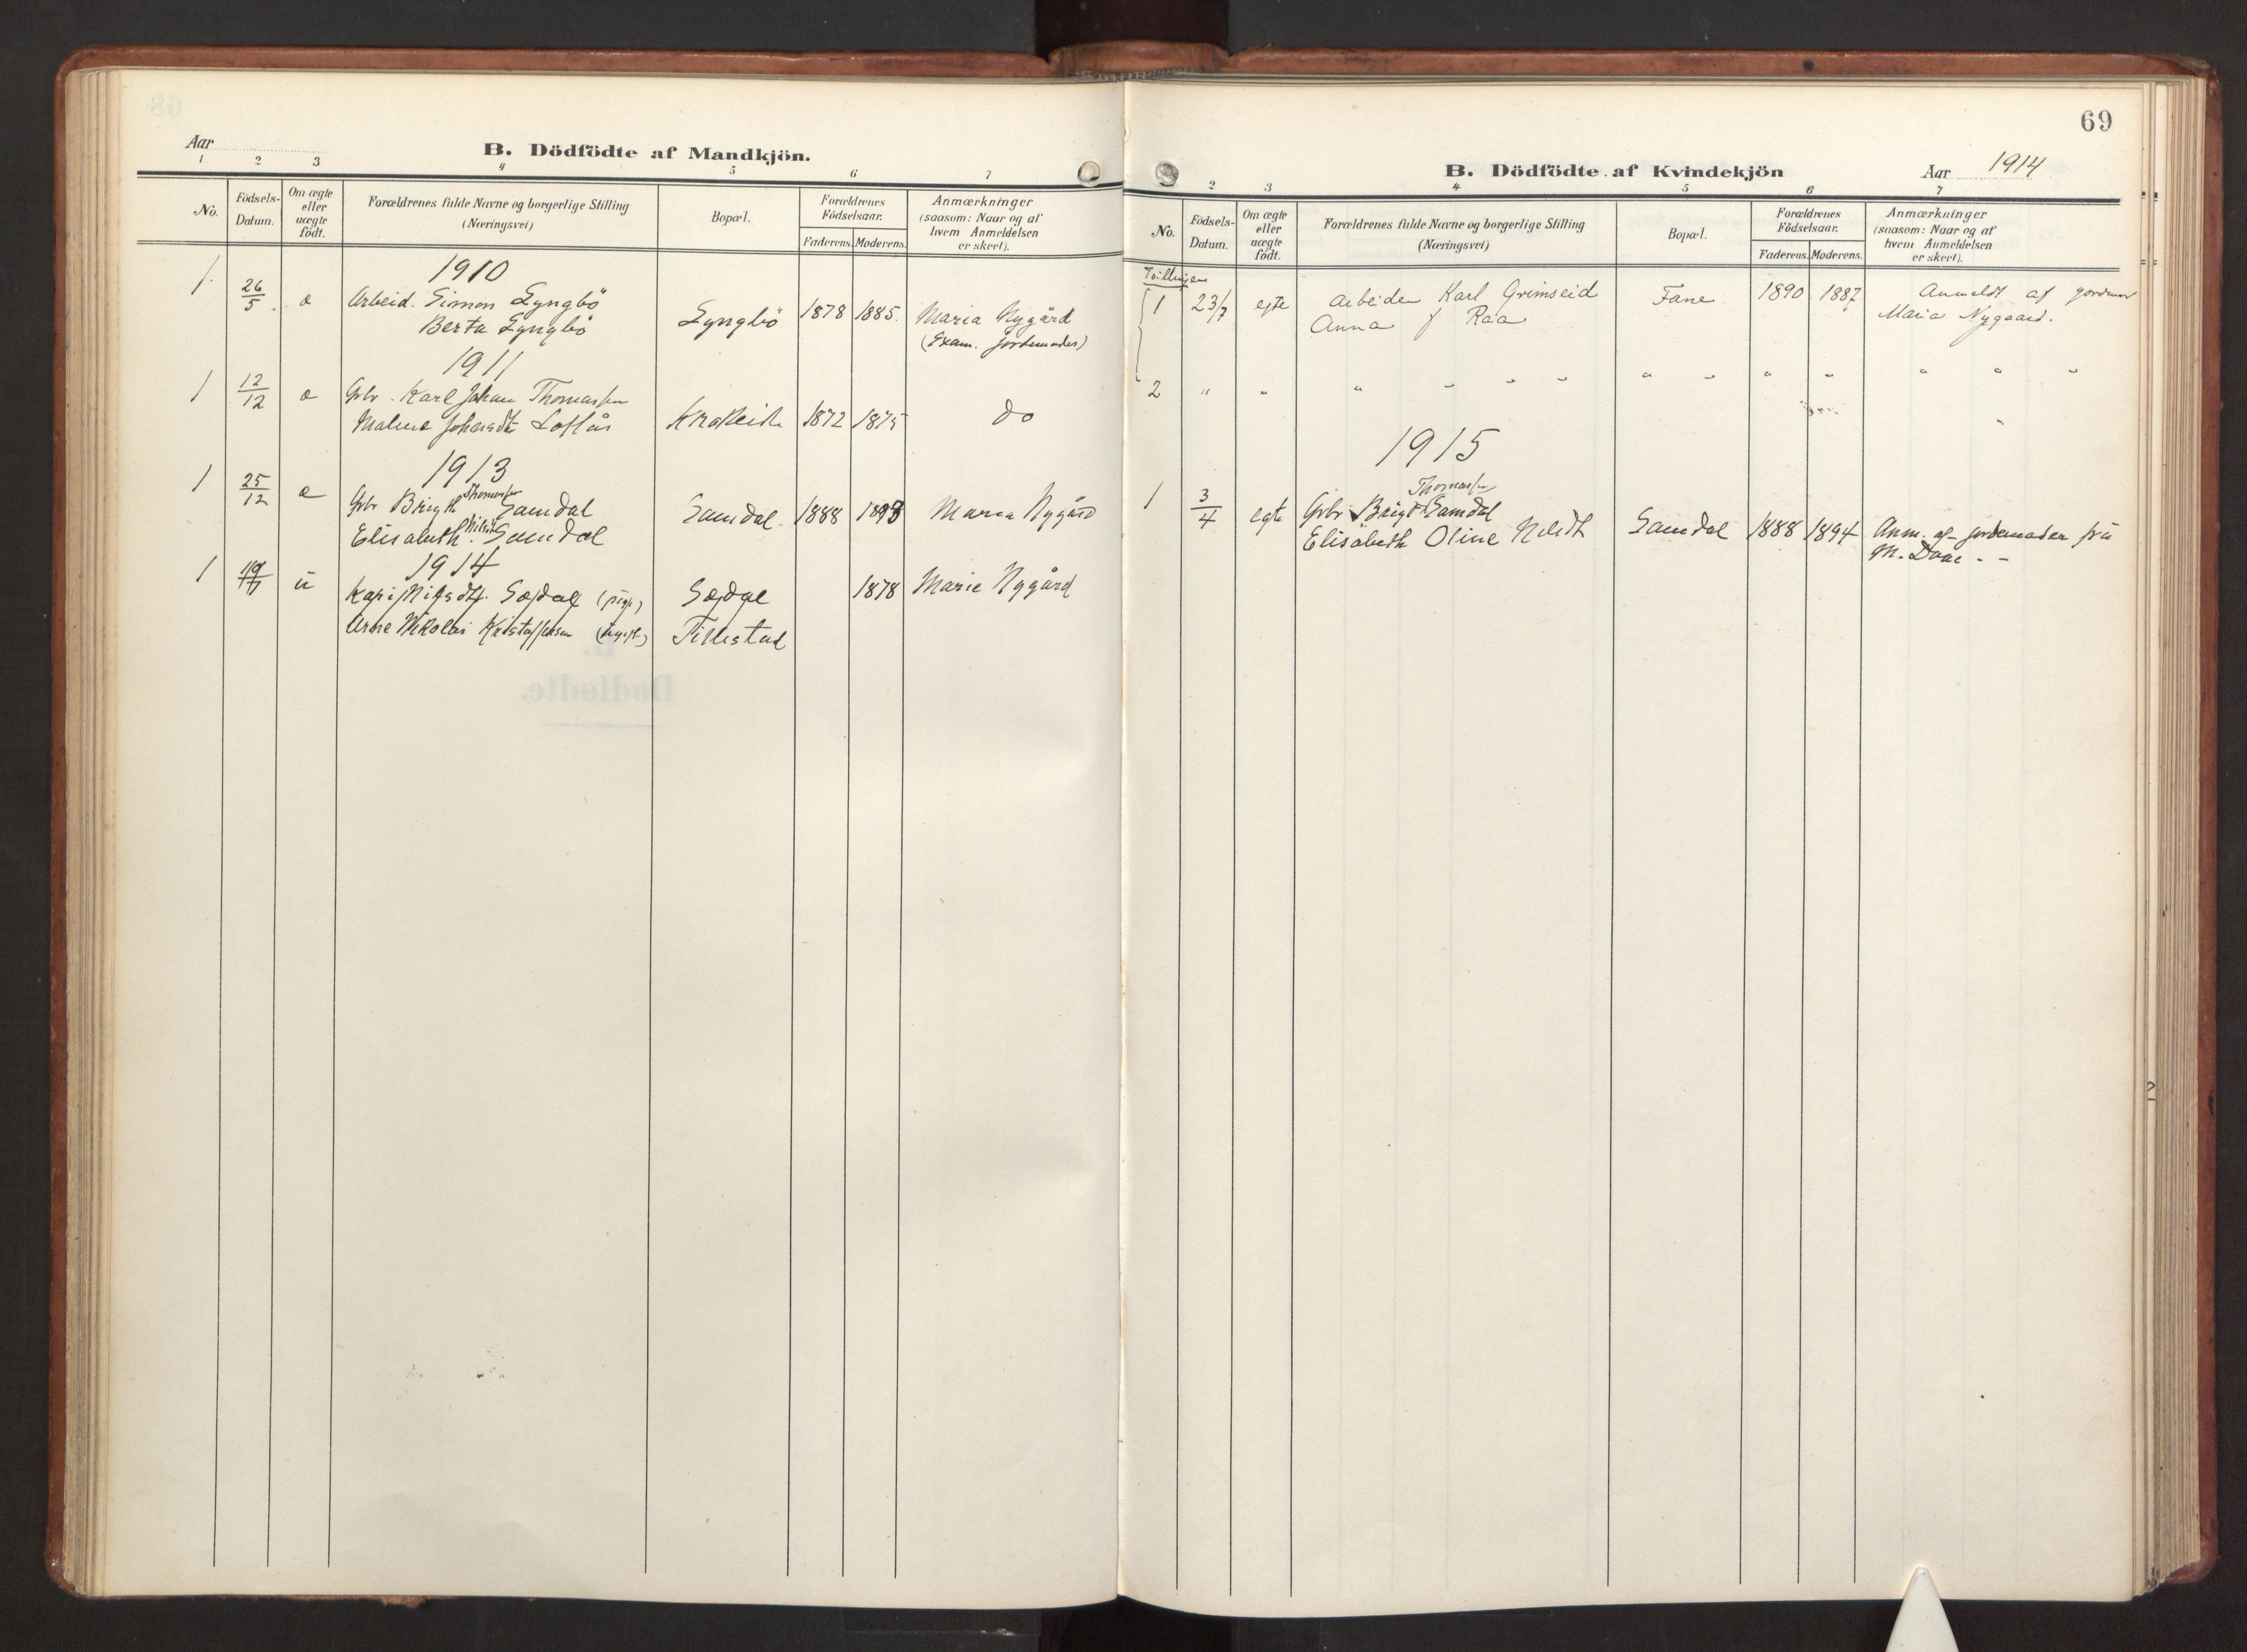 Aar
B. Dödfödte af Mandkjön.
1 2 3 4 5 6 7
No.
Födsels-
Datum.
Om ægte
eller
uægte
födt.
Forældrenes fulde Navne og borgerlige Stilling
(Næringsvei)
Bopæl.
Forældrenes
Födselsaar.
Faderens. Moderens.
Anmærkninger
(saasom: Naar og af
hvem Anmeldelsen
er skeet).
1910
1. 26/5. æ Arbeid. Simon Lyngbö
Berta Lyngbö Lyngbö 1878 1885. Maria Nygård
(Exam. jordemoder)
1911
1 12/12 æ Gbr. Karl Johan Thomassen
Malene Johansdtr Loftås 1872 1875 do
1913
1 25/12 æ Gbr Brigt Thomassen Samdal
Elisabeth Nilsdt. Samdal Samdal. 1888 1893 Maria Nygård
1914
1 ü Kari Nilsdt. (pige) 1878 Marie Nygård
Arne Nikolai Kristoffersen Tillestad
B.
Dødfødte.
69
B. Dödfödte af Kvindekjön
Aar 1914
2 3 4 5 6 7
No.
Födsels-
Datum.
Om ægte
eller
uægte
födt.
Forældrenes fulde Navne og borgerlige Stilling
(Næringsvei)
Bopæl.
Forældrenes
Födselsaar.
Faderens. Moderens.
Anmærkninger
(saasom: Naar og af
hvem Anmeldelsen
er skeet).
Tvillinger
1 23/7 egte Arbeider Karl Grimseid Fane 1890 1887 Anmeldt af jordmor
Anna f Raa Maria Nygaard.
2 " " " " " " " " " " " " "
1915
Thomassen
1 3/4 egte Gbr. Brigt Samdal
Elisabeth Oline Nilsdt Samdal 1888 1894 Anm. af jordemoder frü
M. Daae - -